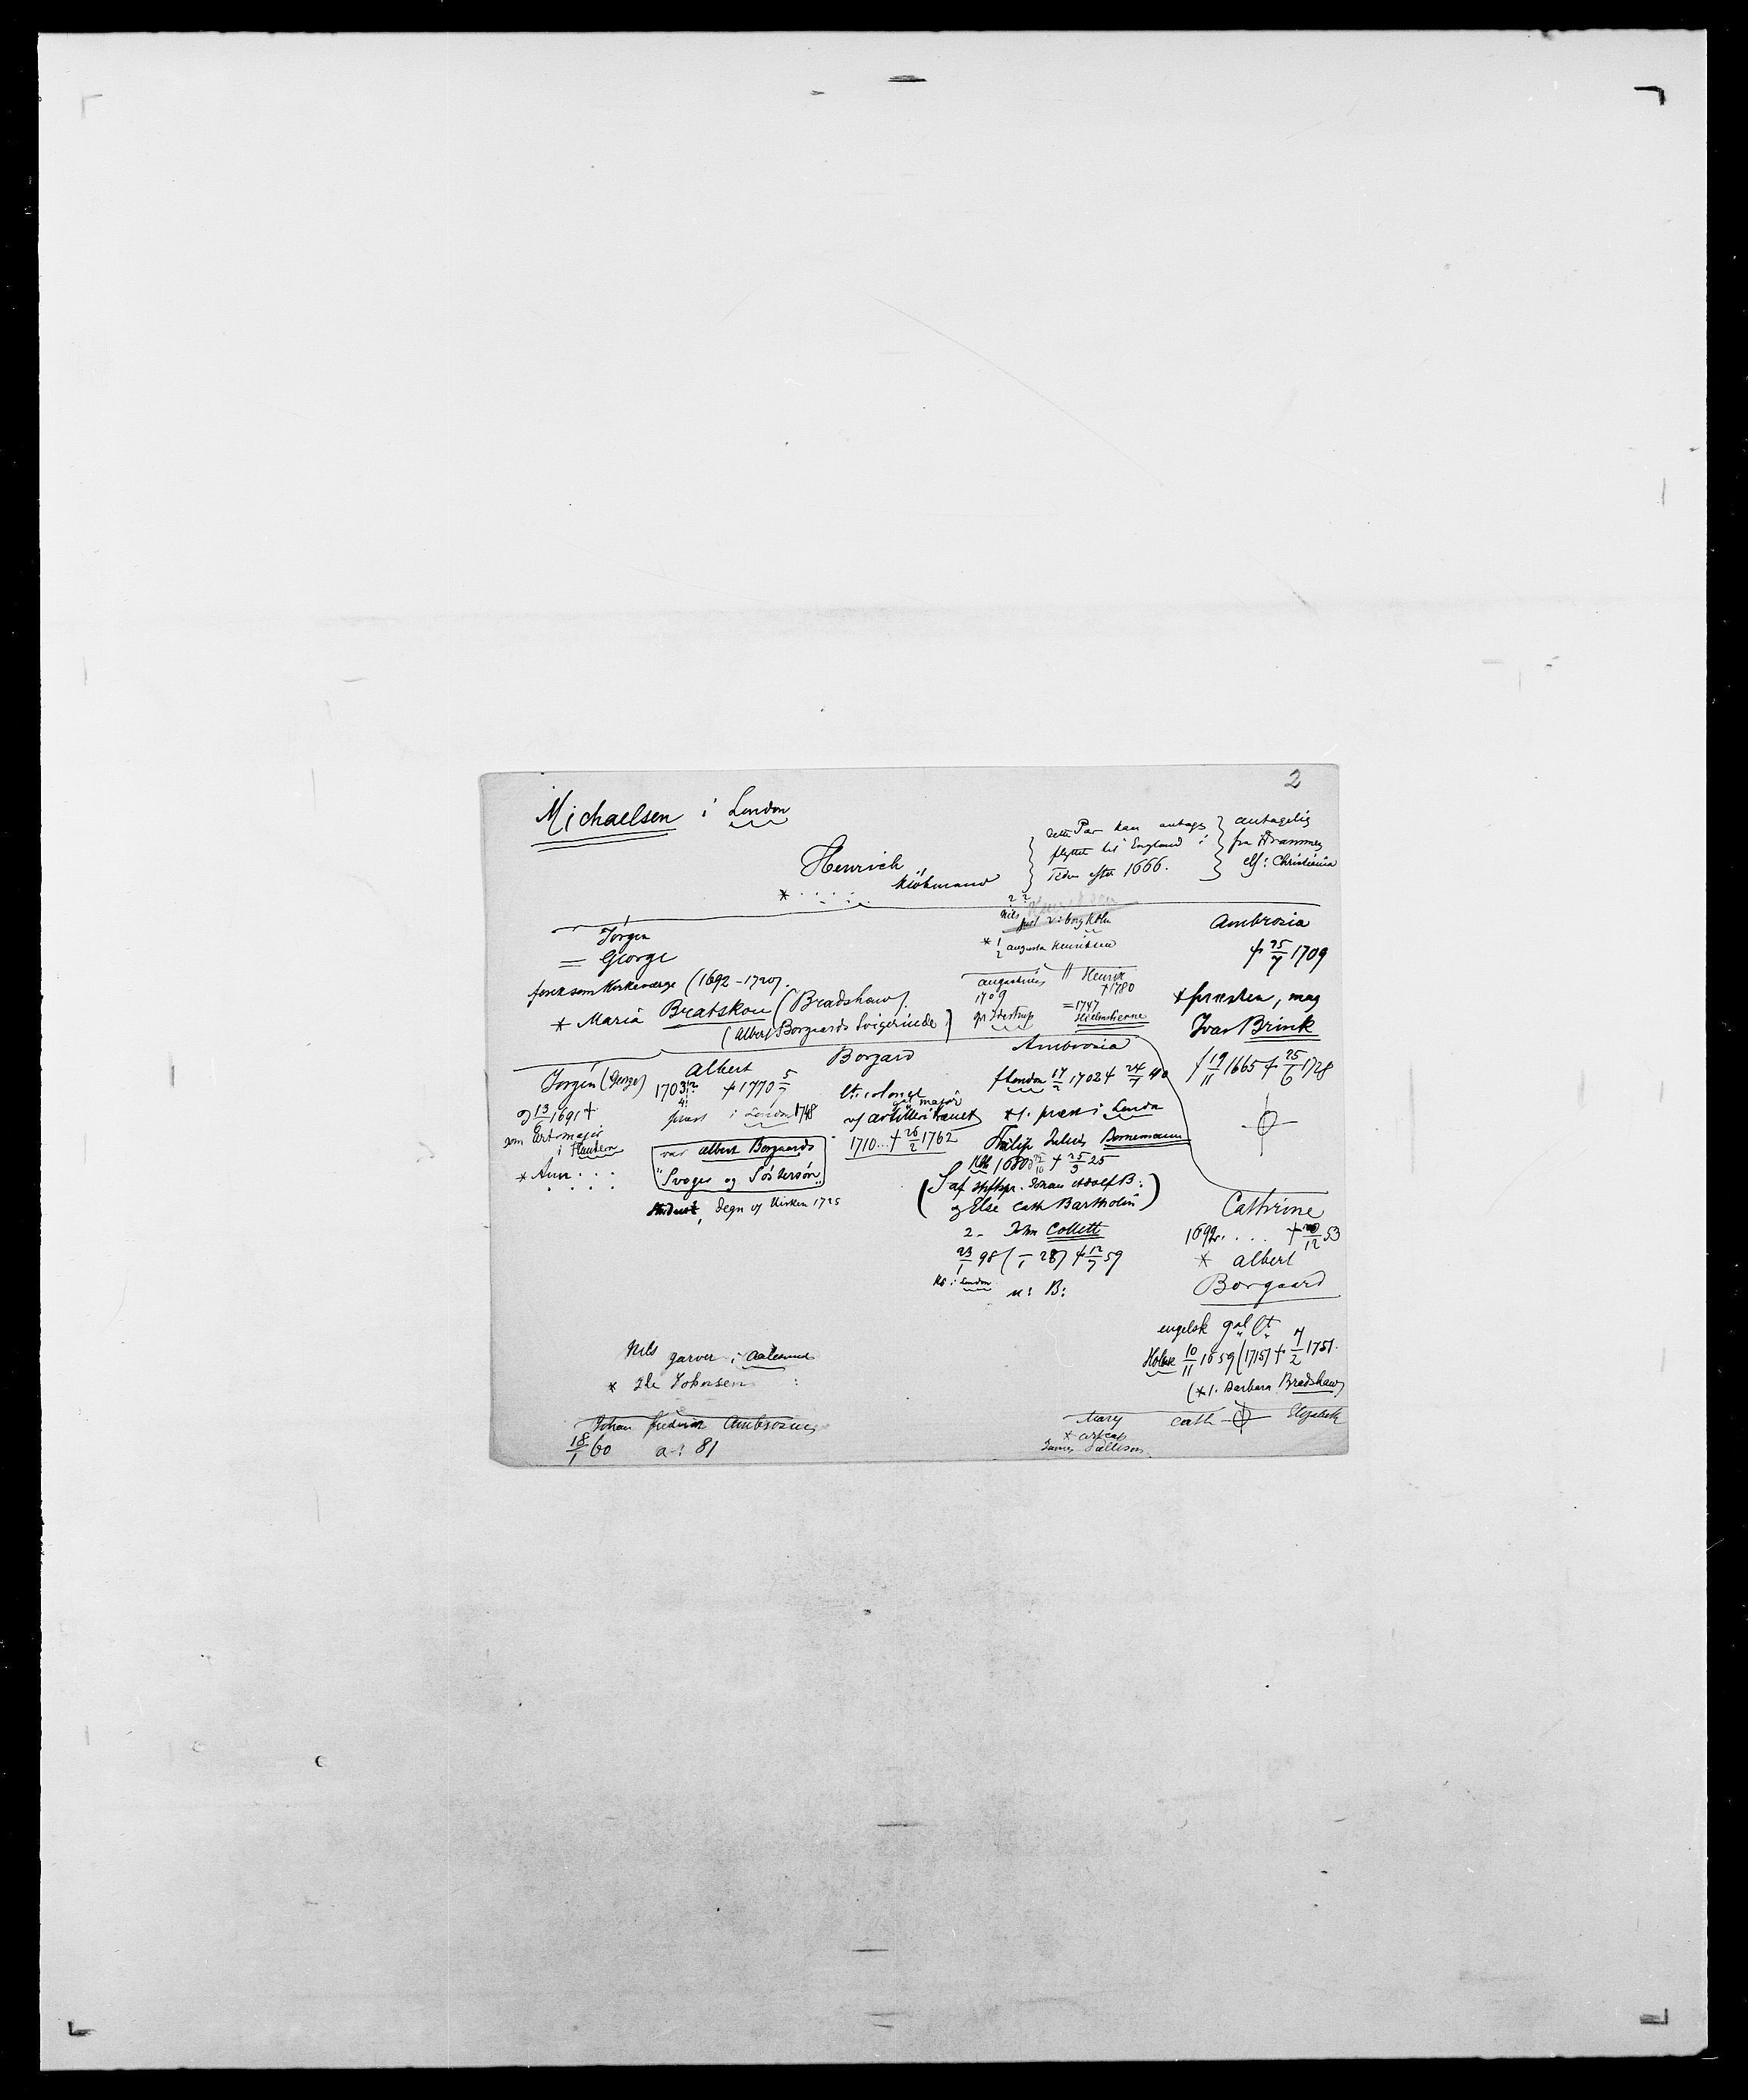 2
Michaelsen i London
Henrich
* . . . . . Kiöbmand
dette Par kan antages
flyttet til England i
Tiden efter 1666.
antagelig
fra Drammen
elf: Christiania
Jörgen
= George
Kirkeværge (1692-1720).
* Maria Bratskou (Bradshaw).
(Albert Borgaards Svigerinde)
? ?
Nils
Juel Viborg Kbhn
* 1
2 augusta Henriksen
augustinus
1709
" Henrik
† 1780
= 1747
Hielmstierne
Ambrosia
† 25/7 1709
* præsten, mag
Ivar Brink
f 19/11 1665 † 25/6 1728
Jörgen (George)
13/6 1691 †
som Art. major
i Flandern
* Ann . . .
. . . .
Albert
1703 † 1770 5/7
præst i London 1748
var Albert Borgaards
"Svoger og Söstersön"
Student, Degn v/ Kirken 1725
Borgard
lt. colonel
major
v/ artilleri
1710... † 26/2 1762
Ambrosia
f London 17/2 1702 † 24/7 40
* 1. præst i London
Philip Julius Bornemann
Kbh 1680 † 25/3 25
(S af stiftspr. Johan Adolf B:
og Else Cath Bartholin)
2- John Collett
23/1 98 (-/1 28) † 12/7 59
i London
u: B:
Cathrine
1692. . . . † 20/12 53
* Albert
Borgaard
engelsk gnl lt
Holbæk 10/11 1659 (1715) † 7/2 1751.
(* 1. Barbara Bradshaw)
Mary
*
James Pattison
Cath
Elizabeth
Nils garver i Aalesund
* Ida Johnsen
Johan Fredrik Ambrosius
18/1 60 a: 81